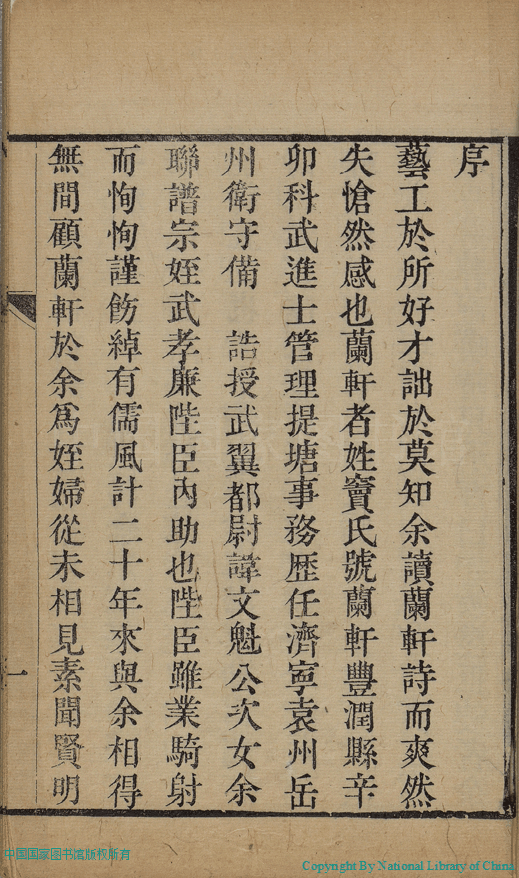 序
藝工於所好才詘於莫知余讀蘭軒詩而爽然
失愴然感也蘭軒者姓竇氏號蘭軒豐潤縣辛
卯科武進士管理提塘事務歷任濟寧袁州岳
州衛守備　誥授武翼都尉諱文魁公次女余
聯譜宗姪武孝廉陛臣內助也陛臣雖業騎射
而恂恂謹飭綽有儒風計二十年來與余相得
無間顧蘭軒於余爲姪婦從未相見素聞賢明
一
中国国家图书馆版权所有
Copyright By National Library of China